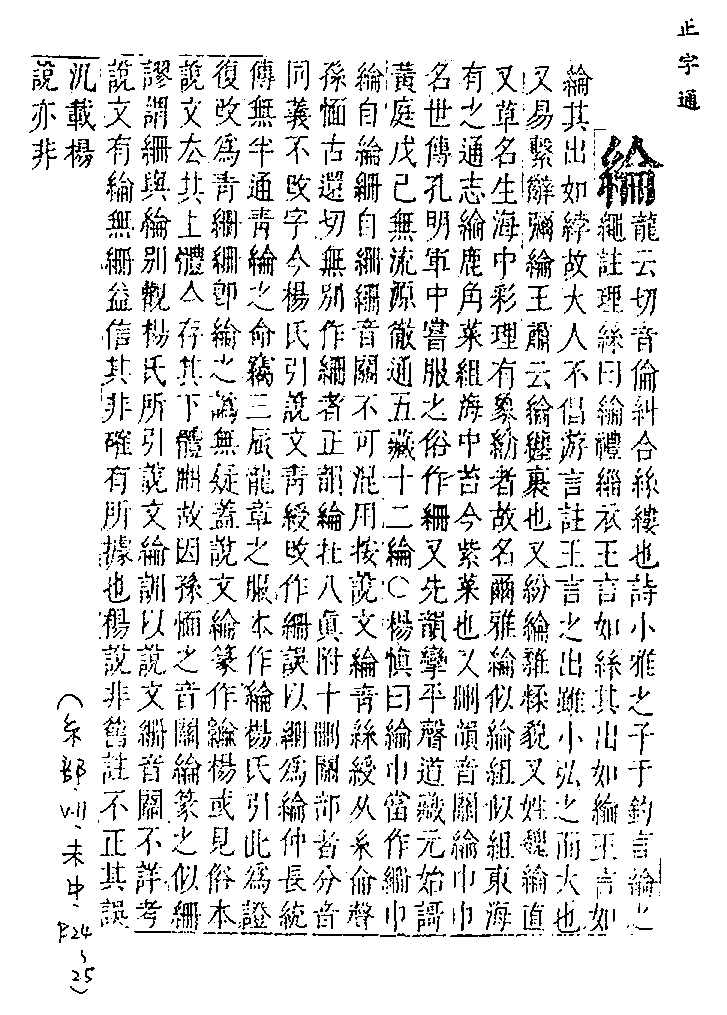 正字通
綸
龍云切音倫糾合絲縷也詩小雅之子于釣言綸之
繩註理絲曰綸禮緇衣王言如絲其出如綸王言如
綸其出如綍故大人不倡游言註王言之出雖小弘之而大也
又易繫辭彌綸王肅云綸纏裹也又紛綸雜糅貌又姓魏綸直
又草名生海中彩理有象紛者故名爾雅綸似綸組似組東海
有之通志綸鹿角菜組海中苔今紫菜也又刪韻音關綸巾巾
名世傳孔明軍中嘗服之俗作䌟又先韻攣平聲道藏元始謌
黃庭戊己無流源徹通五藏十二綸○楊慎曰綸巾當作䌟巾
綸自綸䌟自䌟䌟音關不可混用按說文綸青絲綬从糸侖聲
孫愐古還切無別作䌟者正韻綸在八眞附十刪關部者分音
同義不改字今楊氏引說文青綬改作䌟誤以䌟爲綸仲長統
傳無半通青綸之命竊三辰龍章之服本作綸楊氏引此爲證
復改爲青䌟䌟卽綸之譌無疑蓋說文綸篆作綸楊或見俗本
說文厺其上體亼存其下體冊故因孫愐之音關綸篆之似䌟
謬謂䌟與綸別觀楊氏所引說文綸訓以說文䌟音關不詳考
說文有綸無䌟益信其非確有所據也楊說非舊註不正其誤
沉載楊
說亦非
(糸部、V.11、未中、P.24~25)